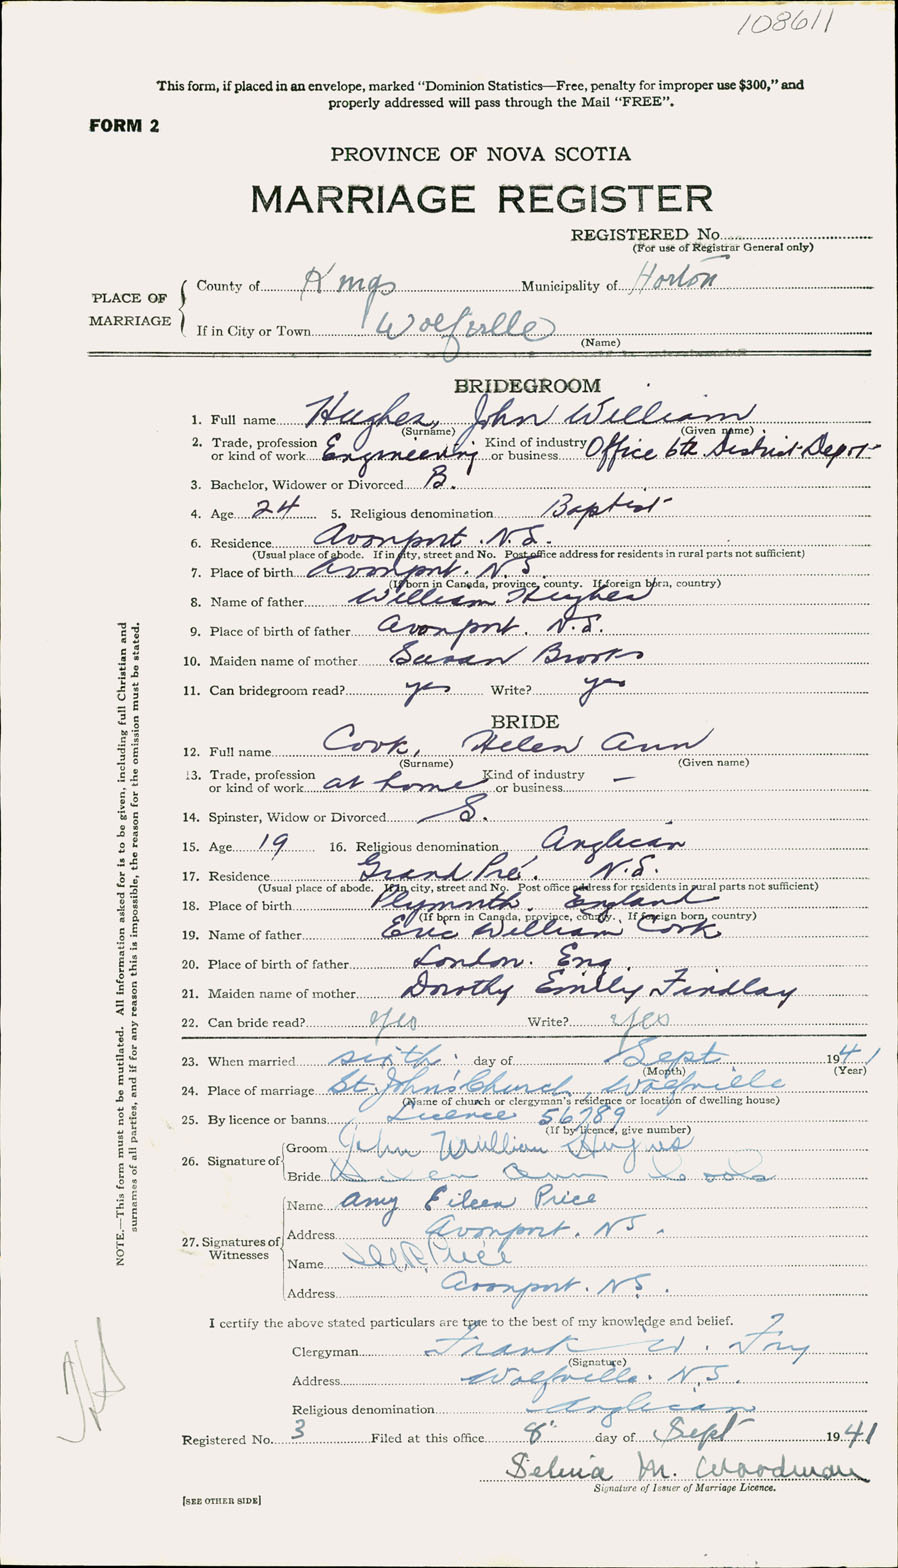 108611
This form, if placed in an envelope, marked “Dominion Statistics—Free, penalty for improper use $300,” and
properly addressed will pass through the Mail “FREE”.
FORM 2
PROVINCE OF NOVA SCOTIA
MARRIAGE REGISTER
REGISTERED No.
(For use of Registrar General only)
PLACE OF MARRIAGE
County of Kings Municipality of Horton
If in City or Town Wolfville
(Name)
BRIDEGROOM
1. Full name Hughes, John William
(Surname) (Given name)
2. Trade, profession or kind of work Engineering Kind of industry or business Office 6th District Depot
3. Bachelor, Widower or Divorced B.
4. Age 24 5. Religious denomination Baptist
6. Residence Avonport N.S.
(Usual place of abode. If in city, street and No. Post office address for residents in rural parts not sufficient)
7. Place of birth Avonport. N.S.
(If born in Canada, province, county. If foreign born, country)
8. Name of father William Hughes
9. Place of birth of father Avonport. N.S.
10. Maiden name of mother Susan Brooks
11. Can bridegroom read? yes Write? yes
BRIDE
12. Full name Cook, Helen Ann
(Surname) (Given name)
13. Trade, profession or kind of work at home Kind of industry or business –
14. Spinster, Widow or Divorced S.
15. Age 19 16. Religious denomination Anglican
17. Residence Grand Pré. N.S.
(Usual place of abode. If in city, street and No. Post office address for residents in rural parts not sufficient)
18. Place of birth Plymouth, England
(If born in Canada, province, county. If foreign born, country)
19. Name of father Eric William Cook
20. Place of birth of father London. Eng.
21. Maiden name of mother Dorothy Emily Findlay
22. Can bride read? Yes Write? Yes
23. When married sixth day of Sept 1941
(Month) (Year)
24. Place of marriage St. John's Church, Wolfville
(Name of church or clergyman's residence or location of dwelling house)
25. By licence or banns Licence 56789
(If by licence, give number)
26. Signature of
Groom John William Hughes
Bride Helen Ann Cook
27. Signatures of Witnesses
Name Amy Eileen Price
Address Avonport. N.S.
Name Price
Address Avonport. N.S.
I certify the above stated particulars are true to the best of my knowledge and belief.
Clergyman Frank W. Fry
(Signature)
Address Wolfville. N.S.
Religious denomination Anglican
Registered No. 3 Filed at this office 8 day of Sept 1941
Selina M. Woodman
Signature of Issuer of Marriage Licence.
[SEE OTHER SIDE]
NOTE.—This form must not be mutilated. All information asked for is to be given, including full Christian and
surnames of all parties, and if for any reason this is impossible, the reason for the omission must be stated.